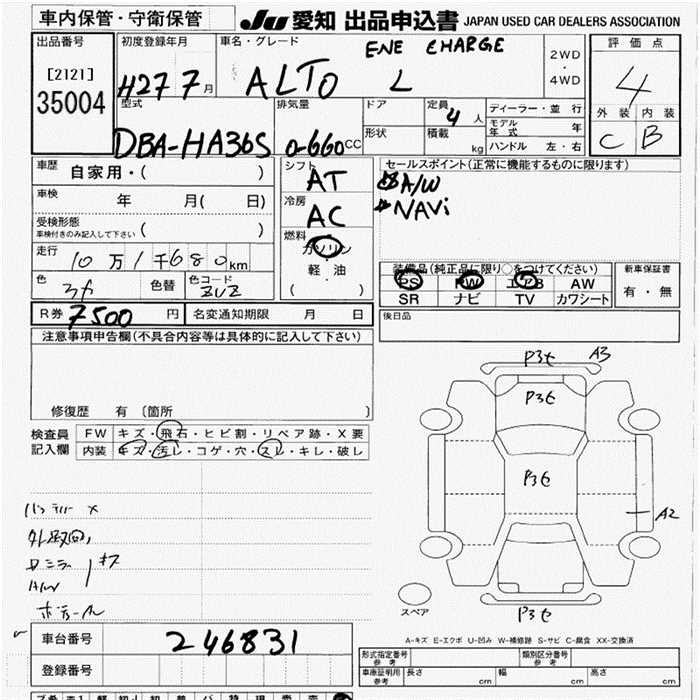 車内保管・守衛保管
JU 愛知 出品申込書 JAPAN USED CAR DEALERS ASSOCIATION
出品番号
[2121]
35004
初度登録年月
H27 7月
車名・グレード
ENE CHARGE
ALTO L
2WD
・
4WD
評価点
4
外装 内装
C B
型式
DBA-HA36S
排気量
0-660cc
ドア
形状
定員
4人
積載
kg
ディーラー・並行
モデル年式 年
ハンドル 左・右
車歴 自家用・( )
車検 年 月( 日)
受検形態
車検付きのみ記入して下さい ( )
走行 10万1千680km
色
色替
色コード
ZUZ
シフト
AT
冷房
AC
燃料
ガソリン
・
軽・油
( )
セールスポイント(正常に機能するものに限ります)
A/W
NAVi
装備品(純正品に限り○をつけてください)
PS PW エアB AW
SR ナビ TV カワシート
新車保証書
有・無
R券 7500円
名変通知期限 月 日
後日品
注意事項申告欄(不具合内容等は具体的に記入して下さい)
修復歴 有 〔箇所 〕
検査員
記入欄
FW キズ・飛石・ヒビ割・リペア跡・X要
内装 キズ・汚レ・コゲ・穴・スレ・キレ・破レ
P3t A3
P3t
P3t
A2
P3t
スペア
バッテリー x
A/W
A-キズ E-エクボ U-凹み W-補修跡 S-サビ C-腐食 XX-交換済
車台番号 246831
登録番号
形式指定番号
参考
類別区分番号
参考
車庫証明用
参考
長さ cm 幅 cm 高さ cm